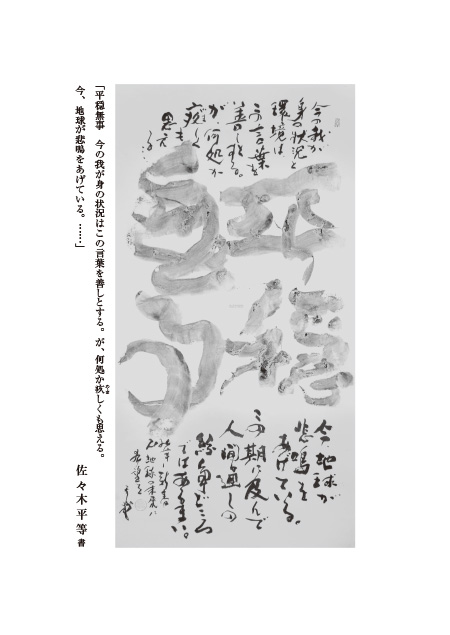 今の我が
身の状況と
環境は
この言葉を
善しとする。
が何処か
疚しく
も
思え
る
平穏
無事
今、地球が
悲鳴を
あげている。
この期に及んで
人間同士の
ではあるまい。
「平穏無事　今の我が身の状況はこの言葉を善しとする。が、何処か疚しくも思える。
今、地球が悲鳴をあげている。……」
佐々木平等 書